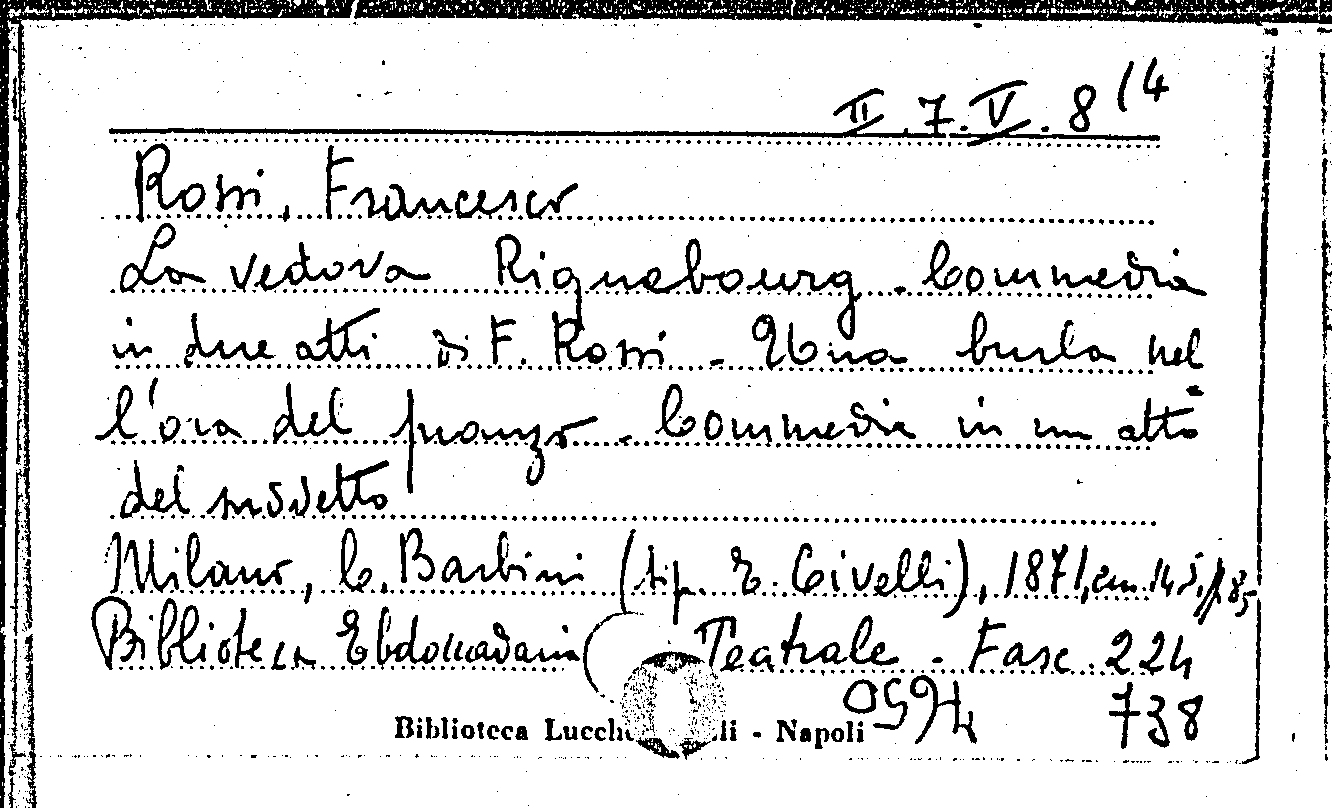 II.7.V.8 /4
Rossi, Francesco
La vedova Riquebourg - Commedia
in due atti di F. Rossi - Una burla nel
l'ora del pranzo - Commedia in un atto
del suddetto
Milano, C. Barbini (tip. E. Civelli), 1871, cm 14,5, p. 85
Biblioteca Ebdomadaria Teatrale - Fasc. 224
738
Biblioteca - Napoli